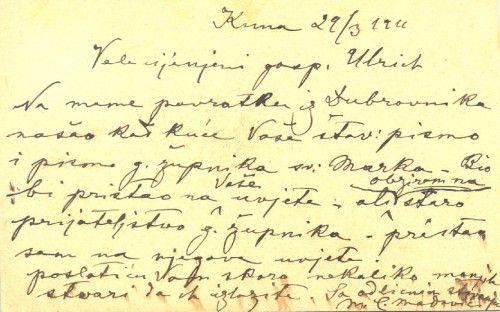 Kuna 29/3 1911
Velecijenjeni gosp. Ulrich
Na mome povratku iz Dubrovnika
našao kod kuće Vaše štov: pismo
i pismo g. župnika sv: Marka - Bio
bi pristao na Vaše uvjete - ali obzirom na staro
prijateljstvo g. župnika - pristao
sam na njegove uvjete.
poslati ću Vam skoro nekoliko manjih
stvari da ih izložite. Sa odličnim
M. C. Medović